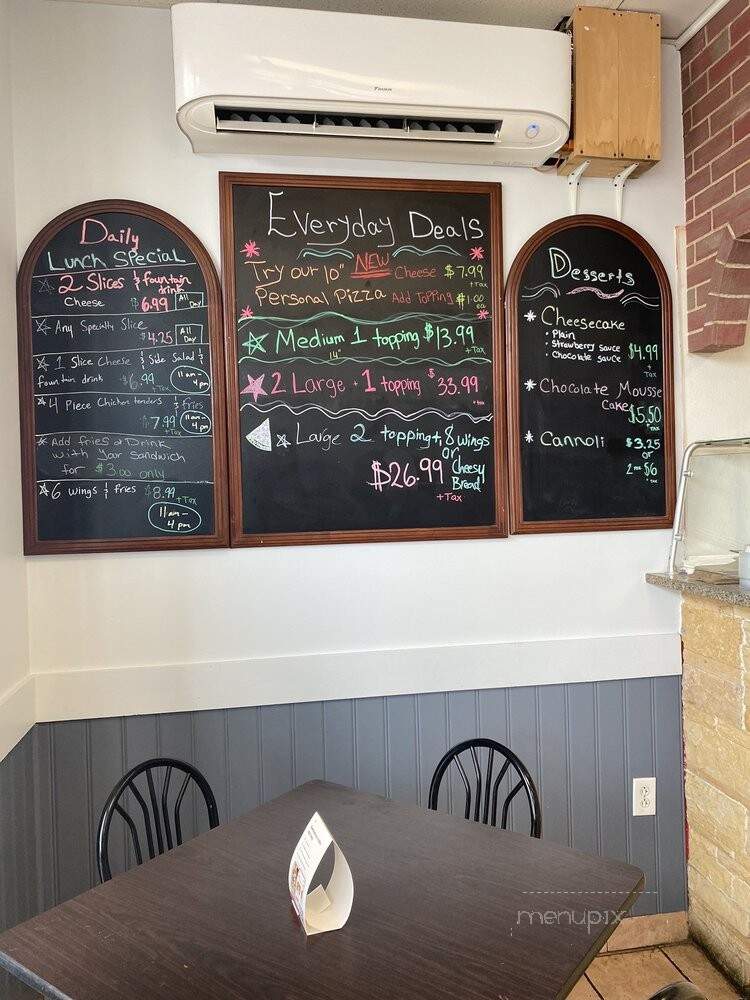 DAIKIN
Daily
Lunch Special
2 Slices & fountain drink
Cheese $6.99 All Day
+Tax
Any Specialty Slice
$4.25 All Day
1 Slice Cheese & Side Salad &
fountain drink $6.99 + Tax 11am - 4pm
4 Piece Chicken tenders & fries
$7.99 + Tax 11am - 4pm
Add fries or Drink
with Your Sandwich
for $3.00 only
6 wings & fries $8.99 + Tax
11am - 4pm
Everyday Deals
Try our 10" NEW Cheese $7.99 +Tax
Personal Pizza Add Topping $1.00 ea
Medium 1 topping $13.99 + Tax
14"
2 Large - 1 topping $33.99 + Tax
Large 2 topping + 8 wings
or
$26.99 Cheesy Bread
+Tax
Desserts
Cheesecake
• Plain
• Strawberry sauce
• Chocolate sauce $4.99 + Tax
Chocolate Mousse
Cake $5.50 + Tax
Cannoli $3.25
or
2 $6
+ Tax
menupix